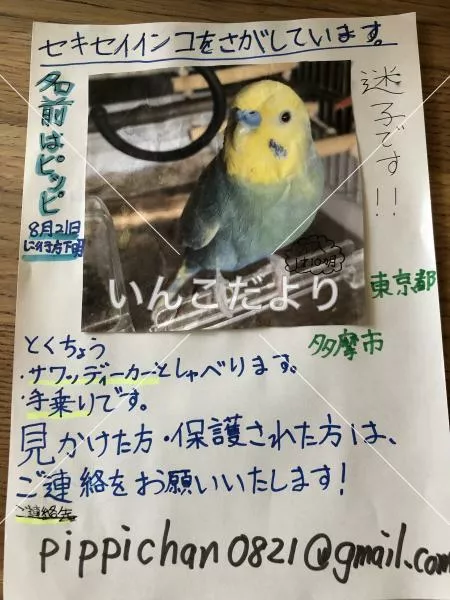 セキセイインコをさがしています。
迷子です!!
名前はピッピ
8月21日
にゆき方不明
1才10ヶ月
いんこだより
東京都
多摩市
とくちょう
・サワッディーカーとしゃべります。
・手乗りです。
見かけた方・保護された方は、
ご連絡をお願いいたします!
ご連絡先
pippichan0821@gmail.com